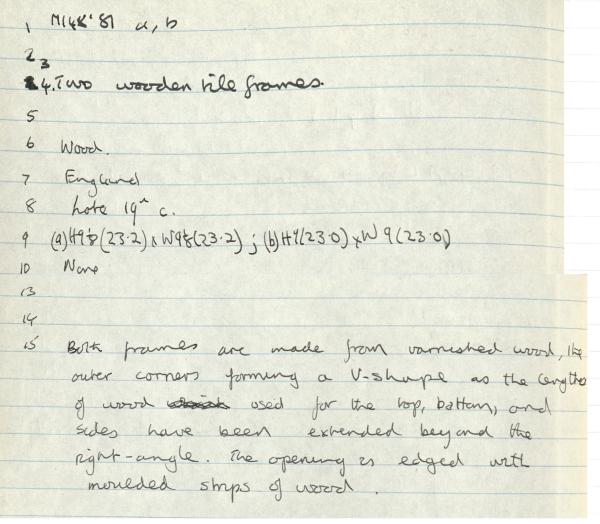 1 M148'81 a, b
2
3
4. Two wooden tile frames.
5
6 Wood.
7 England
8 Late 19th c.
9 (a) H9⅛(23.2) x W9⅛(23.2); (b) H9(23.0) x W 9(23.0)
10 None
13
14
15 Both frames are made from varnished wood, the
outer corners forming a V-shape as the lengths
of wood used for the top, bottom, and
sides have been extended beyond the
right-angle. The opening is edged with
moulded strips of wood.